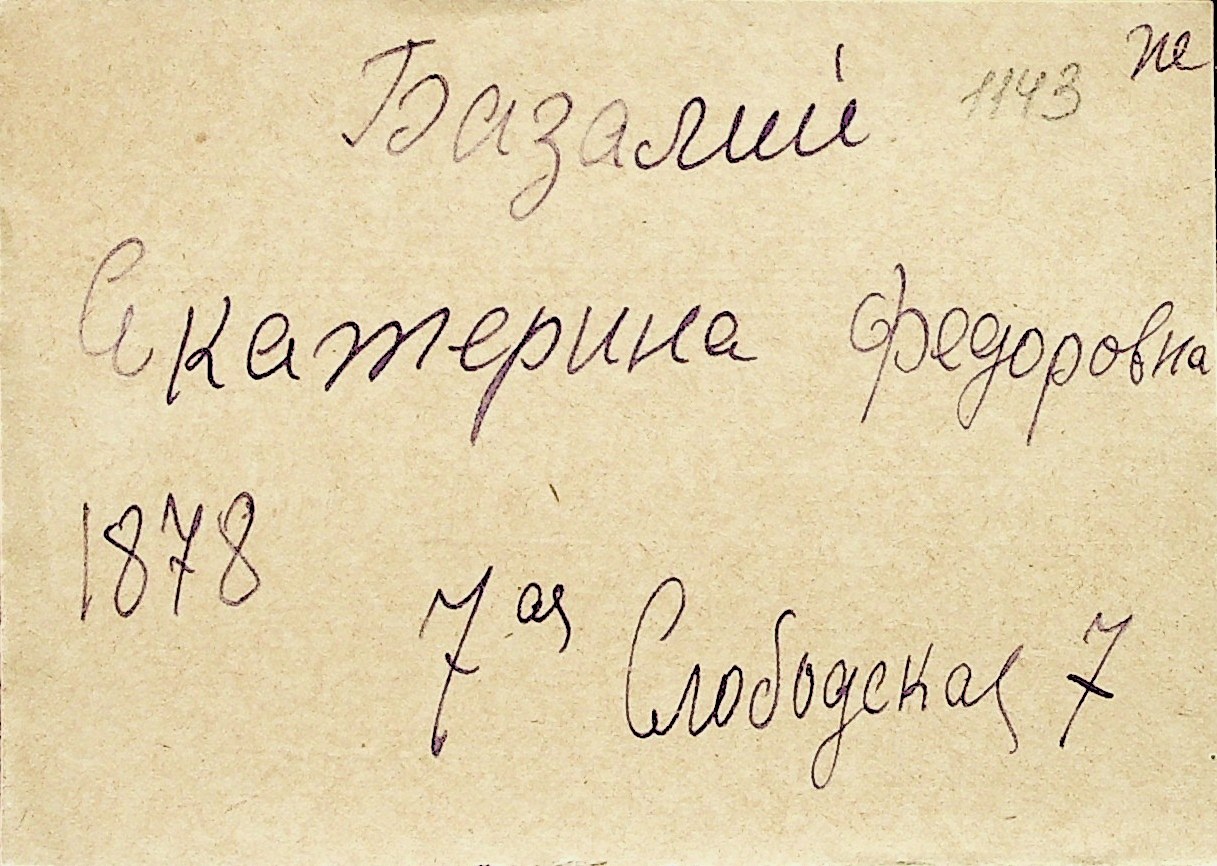 Базалий 1143
Екатерина Федоровна
1878
7ая Слободская 7